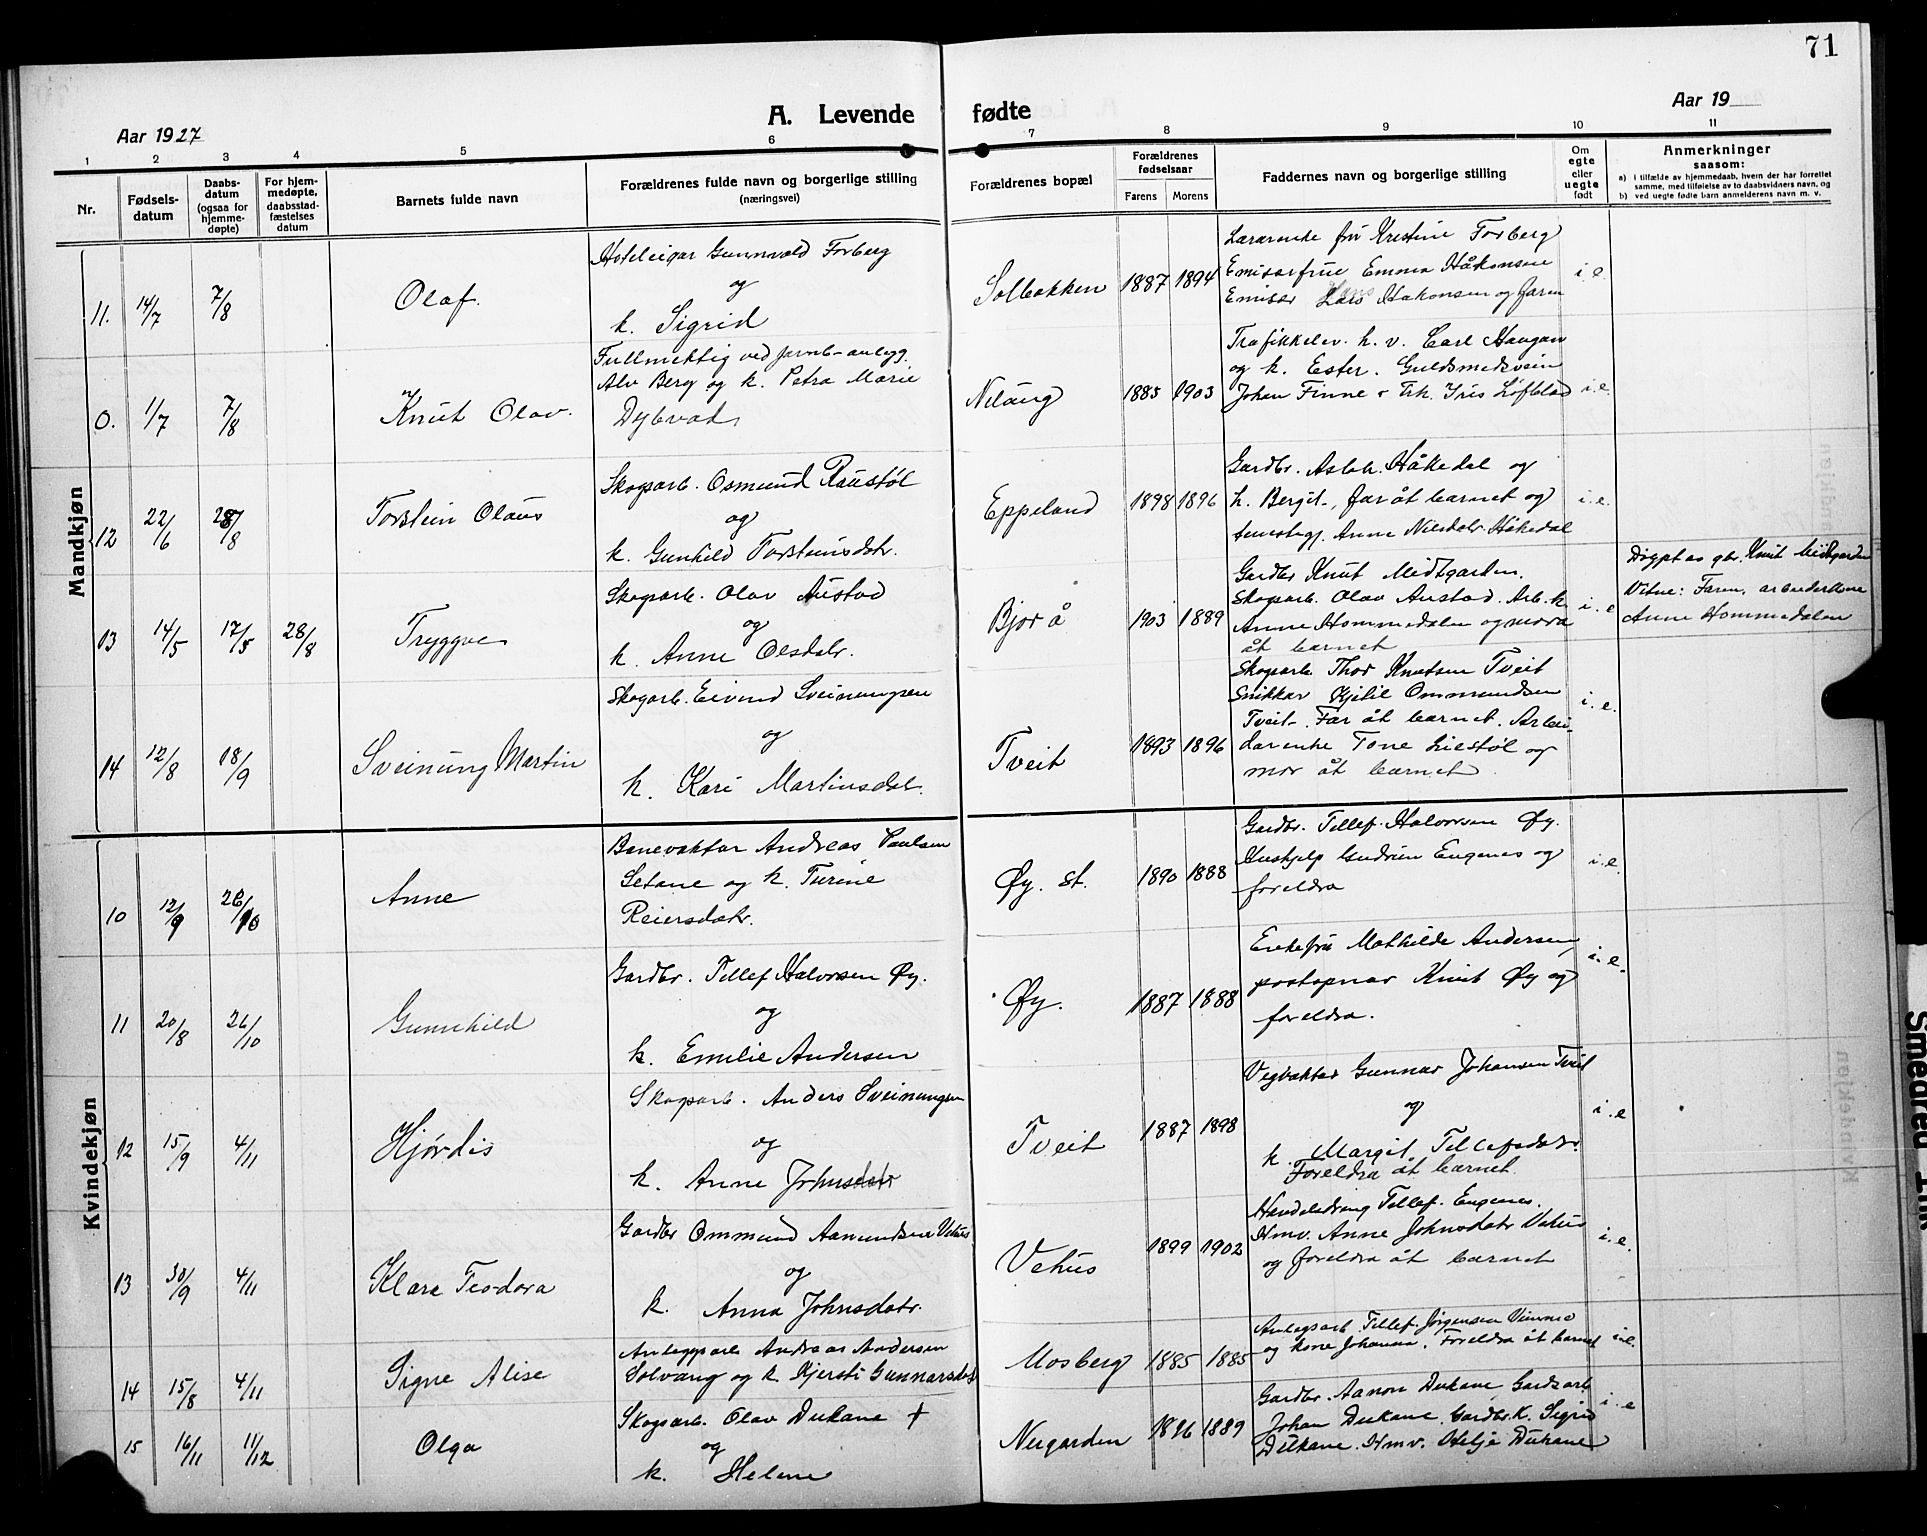 71
A. Levende fødte
Aar 1927
Aar 19
1 2 3 4 5 6 7 8 9 10 11
Nr.
Fødsels-
datum
Daabs-
datum
(ogsaa for
hjemme-
døpte)
For hjem-
medøpte,
daabsstad-
fæstelses
datum
Barnets fulde navn
Forældrenes fulde navn og borgerlige stilling
(næringsvei)
Forældrenes bopæl
Forældrenes
fødselsaar
Farens Morens
Faddernes navn og borgerlige stilling
Om
egte
eller
uegte
født
Anmerkninger
saasom:
a) I tilfælde av hjemmedaab, hvem der har forrettet
samme, med tilføielse av to daabsvidners navn, og
b) ved uegte fødte barn anmelderens navn m. v.
Mandkjøn
11. 14/7 7/8 Olaf.
Hoteleigar Gunnvald Forberg
og
k. Sigrid
Solbakken 1887 1894
Lærarenke fru Kristine Forberg
Emisærfrue Emma Håkonsen
Emisær Lars Håkonsen og faren
i. e.
0. 1/7 7/8 Knut Olav.
Fullmektig ved jarnb-anlegg.
Alv Berg og k. Petra Marie
Dybvad
Nelaug 1885 1903
Trafikkelev. h. v. Carl Haugan
og k. Ester. Guldsmedsvein
Johan Finne & Frk. Iris Løfblad
i. e.
12 22/6 28/8 Torstein Olaus
Skogsarb. Osmund Raustøl
og
k. Gunhild Torsteinsdtr.
Eppeland 1898 1896
Gardbr. Asbh. Håkedal og
k. Bergit, far åt barnet og
tenestegj. Anne Nilsdotr Håkedal
i. e.
13 14/5 17/5 28/8 Tryggve
Skogsarb. Olav Austad
og
k. Anne Olsdotr.
Bjorå 1903 1889
Gardbr Knut Midtgarden.
Skogsarb. Olav Austad. Arb. k.
Anne Hommedalen og mora
åt barnet
i. e
Døypt av gbr. Knut Midtgarden
Vitne: Faren, arbeiderkone
Anne Hommedalen
14 12/8 18/9 Sveinung Martin
Skogarb. Eivind Sveinungsen
og
k. Kari Martinsdotr.
Tveit 1893 1896
Skogarb. Thor Knutsen Tveit
Snikkar Kjetil Ommundsen
Tveit. Far åt barnet. Arbei-
darenke Tone Liestøl og
mor åt barnet.
i. e.
Kvindekjøn
10 12/9 26/10 Anne
Banevaktar Andreas Paulsen
Setane og k. Turine
Reiersdatr.
Øy. st. 1890 1888
Gardbr. Tellef Halvorsen Øy.
Hushjelp Gudrun Engenes og
foreldra
i. e.
11 20/8 26/10 Gunnhild
Gardbr. Tellef Halvorsen Øy.
og
k. Emilie Andersen
Øy. 1887 1888
Enkefru Mathilde Andersen,
postopnar Knut Øy og
foreldra.
i. e.
12 15/9 4/11 Hjørdis
Skogsarb. Anders Sveinungsen
og
k. Anne Johnsdatr
Tveit 1887 1898
Vegvaktar Gunnar Johansen Tveit
og
k. Margit Tellefsdatr.
Foreldra åt barnet.
i. e
13 30/9 4/11 Klara Teodora
Gardbr Ommund Aamundsen Vehus
og
k. Anna Johnsdatr.
Vehus 1899 1902
Handelsdreng Tellef Engenes.
Hmv. Anne Johnsdatr Vehus
og foreldra åt barnet
i. e.
14 15/8 4/11 Signe Alise
Anleggsarb Andreas Andersen
Solvang og k. Kjersti Gunnarsdotr
Mosberg 1885 1885
Anlegsarb Tellef Jørgensen Vimme
og kone Johanna. Foreldra åt barnet
i.e.
15 16/11 11/12 Olga
Skogsarb. Olav Dukane †
og
k. Helene
Neigarden 1896 1889
Gardbr. Aanon Dukane, Gardsarb
Johan Dukane, Gardbr. K. Sigrid
Dukane. Hmv. Helje Dukane
i. e